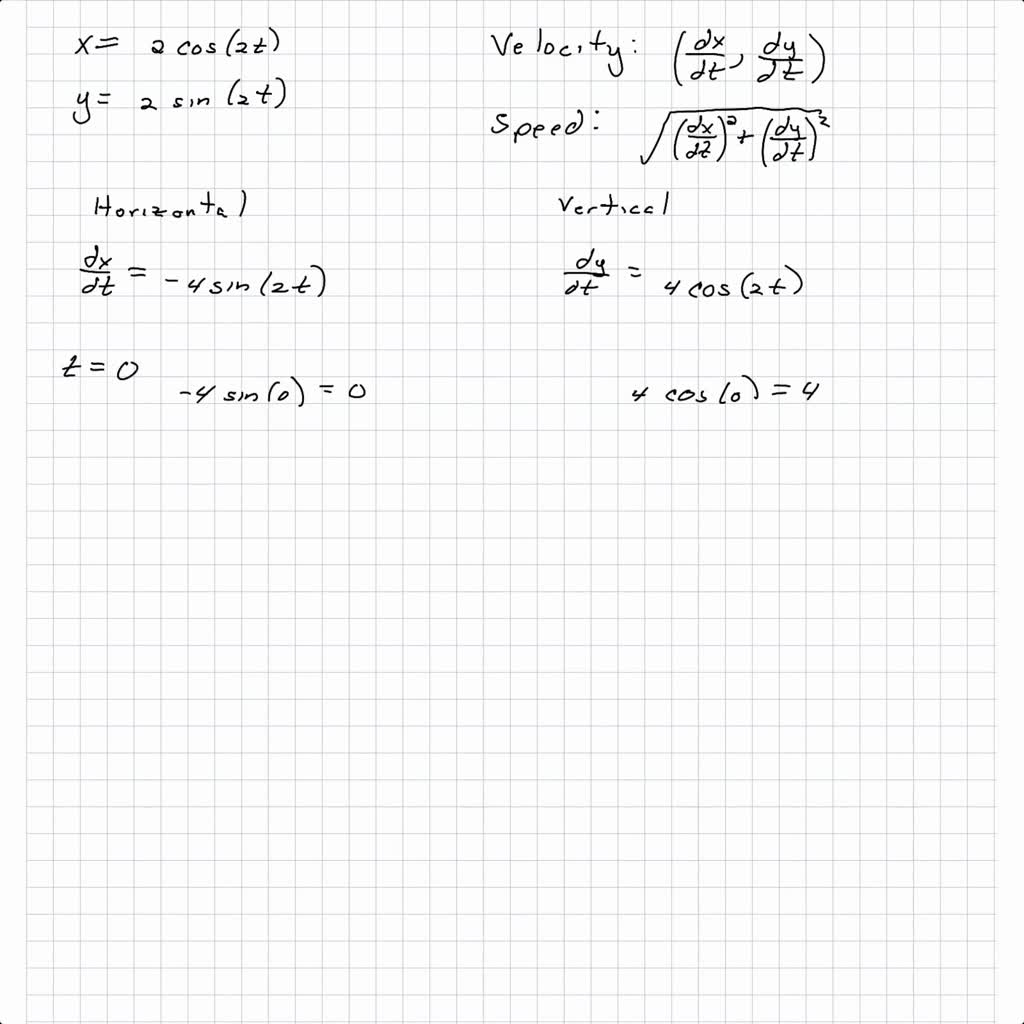 x = 2 cos(2t)
y = 2 sin(2t)
Velocity: (dx/dt, dy/dt)
Speed: √((dx/dt)² + (dy/dt)²)
Horizontal
dx/dt = -4 sin(2t)
Vertical
dy/dt = 4 cos(2t)
t = 0
-4 sin(0) = 0
4 cos(0) = 4